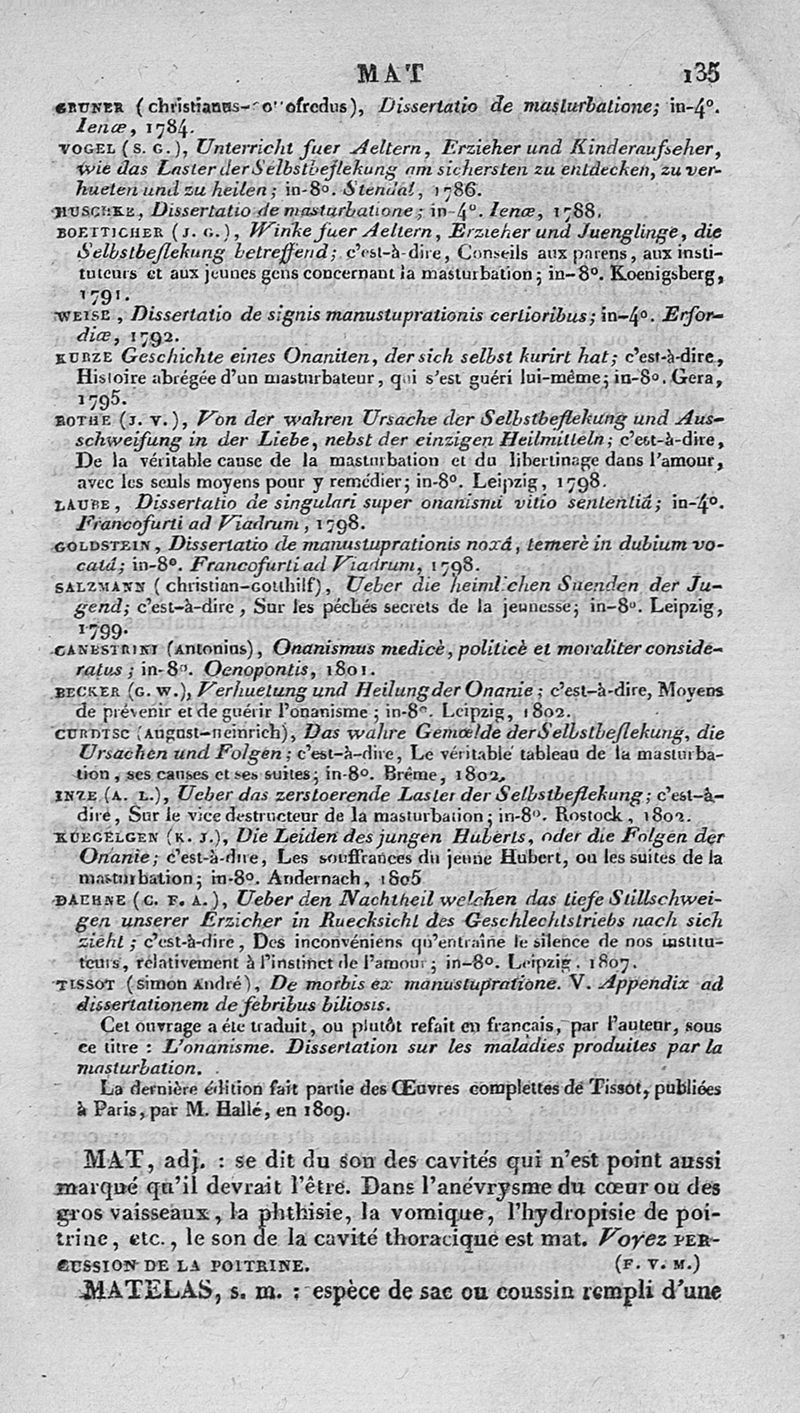 MAT 135
GRUNER (christianus-o''ofredus), Dissertatio de masturbatione; in-4°.
Ienæ, 1784.
VOGEL (S. G.), Unterricht fuer Aeltern, Erzieher und Kinderaufseher,
wie das Laster der Selbstbeflekung am sichersten zu entdecken, zu ver-
hueten und zu heilen; in-8o. Stendal, 1786.
HUSCHKE, Dissertatio de masturbatione; in-4°. Ienæ, 1788.
BOETTICHER (J. G.), Winke fuer Aeltern, Erzieher und Juenglinge, die
Selbstbeflekung betreffend; c'est-à-dire, Conseils aux parens, aux insti-
tuteurs et aux jeunes gens concernant la masturbation; in-8°. Koenigsberg,
1791.
WEISE, Dissertatio de signis manustuprationis certioribus; in-4°. Erfor-
diæ, 1792.
KURZE Geschichte eines Onaniten, der sich selbst kurirt hat; c'est-à-dire,
Histoire abrégée d'un masturbateur, qui s'est guéri lui-même; in-8o. Gera,
1795.
ROTHE (J. V.), Von der wahren Ursache der Selbstbeflekung und Aus-
schweifung in der Liebe, nebst der einzigen Heilmitteln; c'est-à-dire,
De la véritable cause de la masturbation et du libertinage dans l'amour,
avec les seuls moyens pour y remédier; in-8°. Leipzig, 1798.
LAUBE, Dissertatio de singulari super onanismi vitio sententiâ; in-4°.
Francofurti ad Viadrum, 1798.
GOLDSTEIN, Dissertatio de manustuprationis noxâ, temerè in dubium vo-
catâ; in-8°. Francofurti ad Viadrum, 1798.
SALZMANN (christian-Gotthilf), Ueber die heimlichen Suenden der Ju-
gend; c'est-à-dire, Sur les péchés secrets de la jeunesse; in-8°. Leipzig,
1799.
CANESTRINI (Antonius), Onanismus medicè, politicè et moraliter conside-
ratus; in-8°. Oenopontis, 1801.
BECKER (G. W.), Verhuetung und Heilung der Onanie; c'est-à-dire, Moyens
de prévenir et de guérir l'onanisme; in-8°. Leipzig, 1802.
CURDTSC (August-Heinrich), Das wahre Gemœlde der Selbstbeflekung, die
Ursachen und Folgen; c'est-à-dire, Le véritable tableau de la masturba-
tion, ses causes et ses suites; in-8o. Brême, 1802.
INZE (A. L.), Ueber das zerstoerende Laster der Selbstbeflekung; c'est-à-
dire, Sur le vice destructeur de la masturbation; in-8°. Rostock, 1802.
KUEGELGEN (K. J.), Die Leiden des jungen Huberts, oder die Folgen der
Onanie; c'est-à-dire, Les souffrances du jeune Hubert, ou les suites de la
masturbation; in-8o. Andernach, 1805
DAEHNE (C. F. A.), Ueber den Nachtheil welchen das tiefe Stillschwei-
gen unserer Erzicher in Ruecksicht des Geschlechtstriebs nach sich
zieht; c'est-à-dire, Des inconvéniens qu'entraîne le silence de nos institu-
teurs, relativement à l'instinct de l'amour; in-8o. Leipzig, 1807.
TISSOT (simon André), De morbis ex manustupratione. V. Appendix ad
dissertationem de febribus biliosis.
Cet ouvrage a été traduit, ou plutôt refait en français, par l'auteur, sous
ce titre : L'onanisme. Dissertation sur les maladies produites par la
masturbation.
La dernière édition fait partie des Œuvres complettes de Tissot, publiées
à Paris, par M. Hallé, en 1809.
MAT, adj. : se dit du son des cavités qui n'est point aussi
marqué qu'il devrait l'être. Dans l'anévrysme du cœur ou des
gros vaisseaux, la phthisie, la vomique, l'hydropisie de poi-
trine, etc., le son de la cavité thoracique est mat. Voyez PER-
CUSSION DE LA POITRINE. (F. V. M.)
MATELAS, s. m. : espèce de sac ou coussin rempli d'une